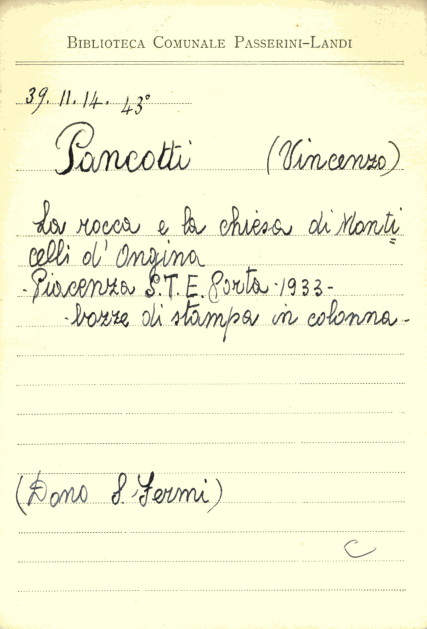 BIBLIOTECA COMUNALE PASSERINI-LANDI
39. 11. 14. 43°
Pancotti (Vincenzo)
La rocca e la chiesa di Monti
celli d' Ongina
- Piacenza S.T.E. Porta - 1933 -
- bozze di stampa in colonna -
(Dono S. Fermi)
C